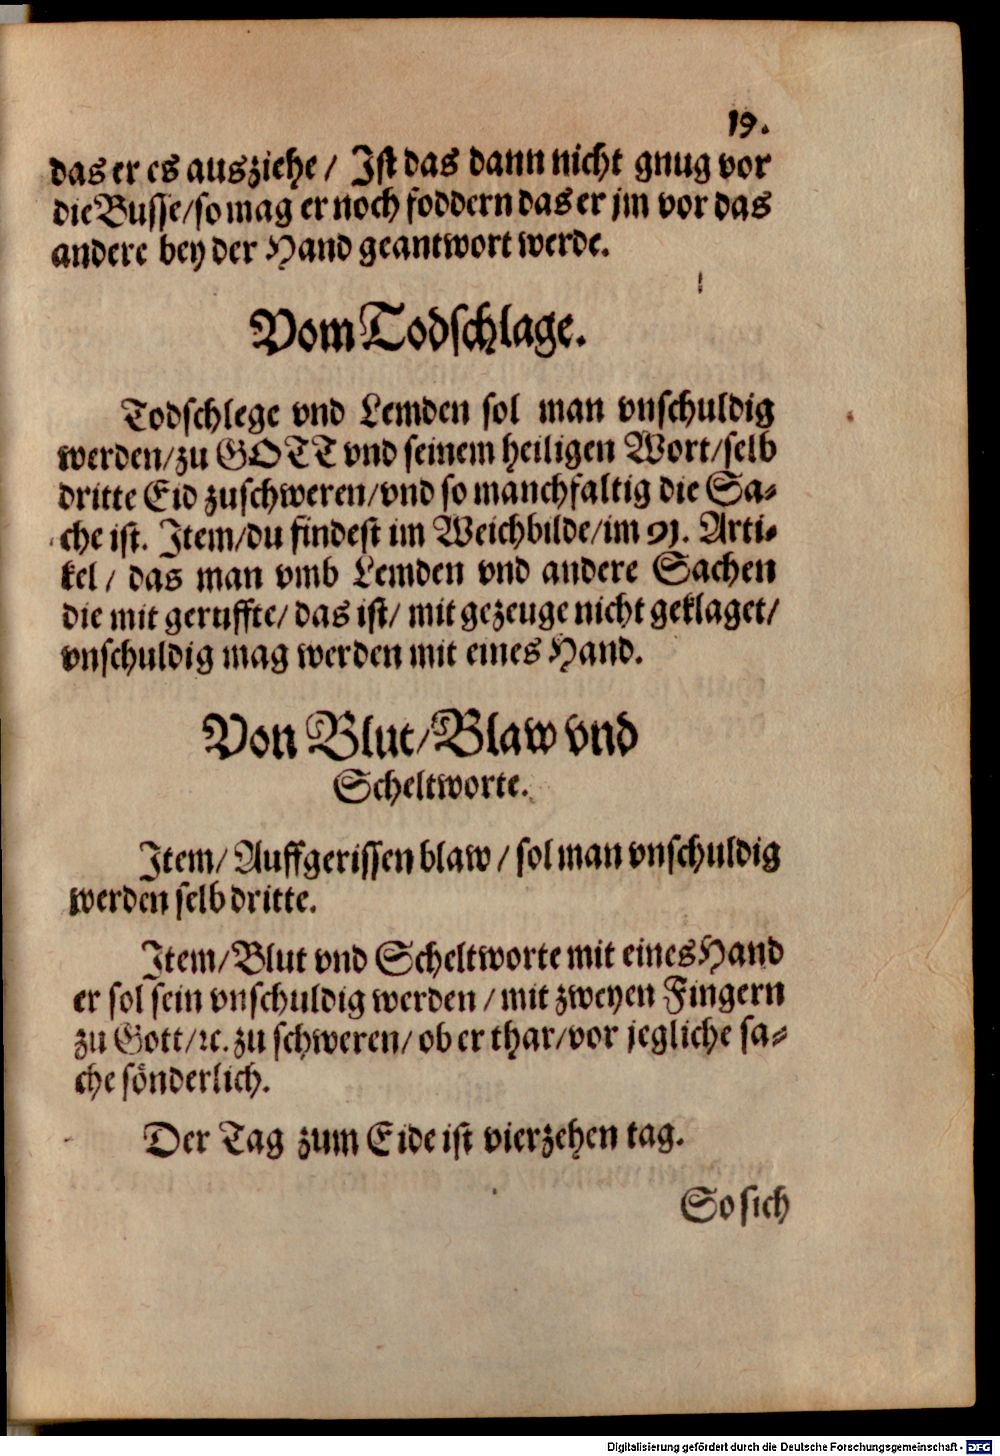 19.
das er es ausziehe / Ist das dann nicht gnug vor
die Busse / so mag er noch foddern das er jm vor das
andere bey der Hand geantwort werde.
Vom Todschlage.
Todschlege vnd Lemden sol man vnschuldig
werden / zu GOTT vnd seinem heiligen Wort / selb
dritte Eid zuschweren / vnd so manchfaltig die Sa-
che ist. Item / du findest im Weichbilde / im 91. Arti-
kel / das man vmb Lemden vnd andere Sachen
die mit geruffte / das ist / mit gezeuge nicht geklaget /
vnschuldig mag werden mit eines Hand.
Von Blut / Blaw vnd
Scheltworte.
Item / Auffgerissen blaw / sol man vnschuldig
werden selb dritte.
Item / Blut vnd Scheltworte mit eines Hand
er sol sein vnschuldig werden / mit zweyen Fingern
zu Gott / ꝛc. zu schweren / ob er thar / vor jegliche sa-
che sönderlich.
Der Tag zum Eide ist vierzehen tag.
So sich
Digitalisierung gefördert durch die Deutsche Forschungsgemeinschaft - DFG